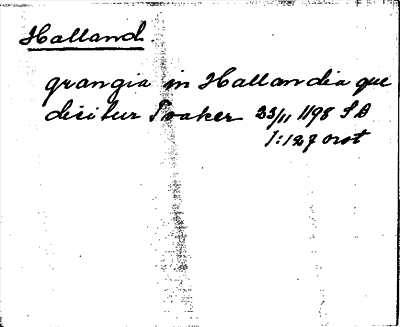 Halland.
grangia in Hallandia que
dicitur Tvaker 23/11 1198 SD
1:127 orot